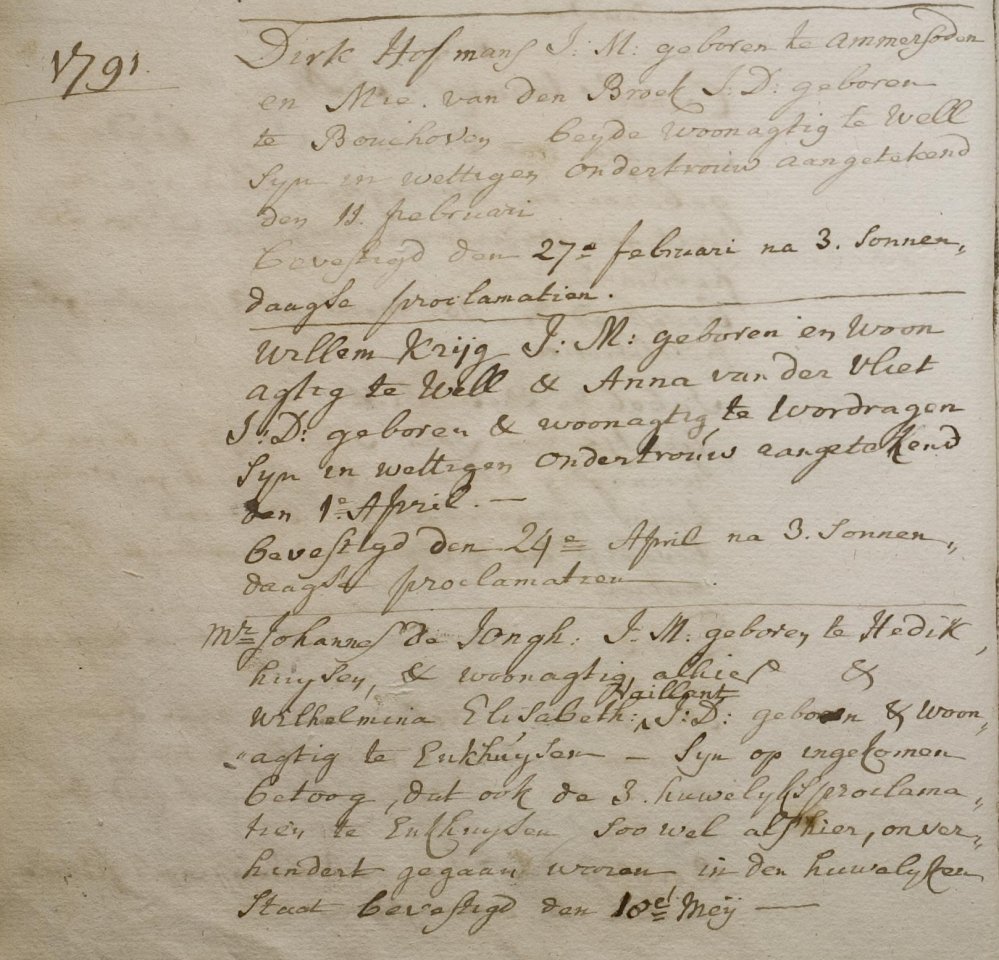 1791.
Dirk Hofmans J: M: geboren te Ammersoden
en Mie. van den Broek J: D: geboren
te Bouchoven – beyde woonagtig te Well
Syn in wettigen Ondertrouw aangetekend
den 11. februari
bevestigd den 27e februari na 3. Sonnen„
daagse proclamatien.
Willem Krijg J: M: geboren en Woon
agtig te Well & Anna van der Vliet
J: D: geboren & woonagtig te Wordragen
Syn in wettigen Ondertrouw aangetekend
den 1e April. —
bevestigd den 24e April na 3. Sonnen„
daagse proclamatien
Mr Johannes de Jongh: J. M: geboren te Hedik„
huysen, & woonagtig alhier &
Vaillant
Wilhelmina Elisabeth: J: D: geboren & Woon„
„agtig te Enkhuysen – Syn op ingekomen
betoog, dat ook de 3. huwelyksproclama„
tien te Enkhuysen, soo wel als hier, onver„
hindert gegaan waren in den huwelyken
Staat bevestigd den 18e Meij —